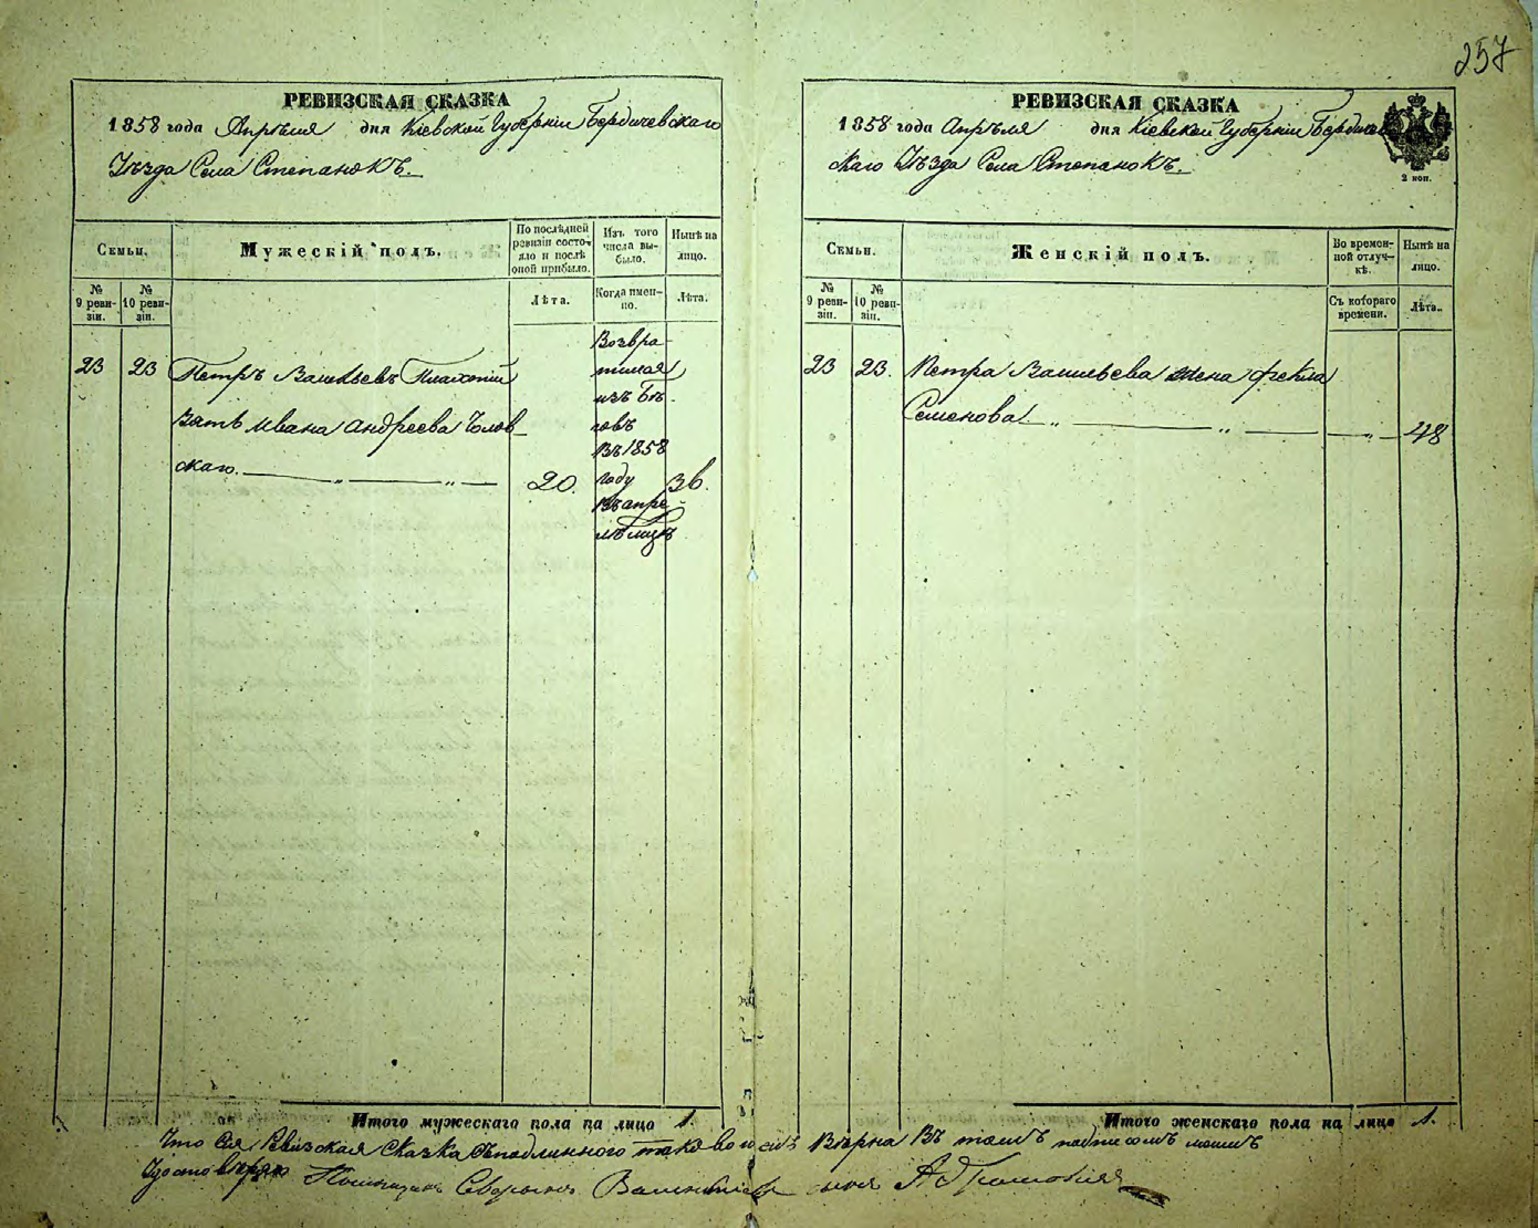 257
РЕВИЗСКАЯ СКАЗКА
1858 года Апрѣля дня Кіевской Губерніи Бердичевскаго
Уѣзда Села Степанокъ.
Семьи.
Мужескій полъ.
По послѣдней
ревизіи состо-
яло и послѣ
оной прибыло.
Изъ того
числа вы-
было.
Нынѣ на
лицо.
№
9 реви-
зіи.
№
10 реви-
зіи.
Лѣта.
Когда имен-
но.
Лѣта.
23 23 Петръ Васильевъ
зять Ивана Андреева
скаго. 20.
Возвра-
тился
изъ Бѣ-
говъ
Въ 1858
году
Въ апре-
лѣ мцѣ
36.
Итого мужескаго пола на лицо 1.
РЕВИЗСКАЯ СКАЗКА
1858 года Апрѣля дня Кіевской Губерніи Бердичев-
скаго Уѣзда Села Степанокъ.
2 коп.
Семьи.
Женскій полъ.
Во времен-
ной отлуч-
кѣ.
Нынѣ на
лицо.
№
9 реви-
зіи.
№
10 реви-
зіи.
Съ котораго
времени.
Лѣта.
23 23. Петра Васильева жена Фекла
Семенова 48
Итого женскаго пола на лицо 1.
Что сія Ревизская Сказка съ подлинного вѣрна въ томъ подписомъ моимъ
Удостовѣряю